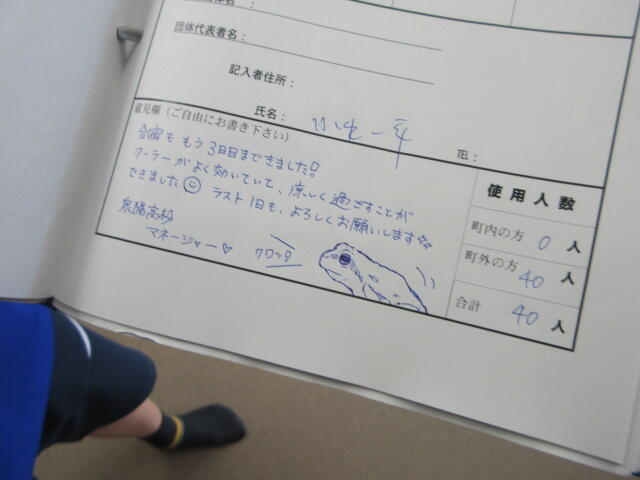 団体代表者名：
記入者住所：
氏名：
TEL：
意見欄（ご自由にお書き下さい）
合宿も もう3日目まできました!!
クーラーがよく効いていて、涼しく過ごすことが
できました☺ ラスト1日も、よろしくお願いします☆
泉陽高校
マネージャー♡
ケロッ!!
使用人数
町内の方 0 人
町外の方 40 人
合計 40 人